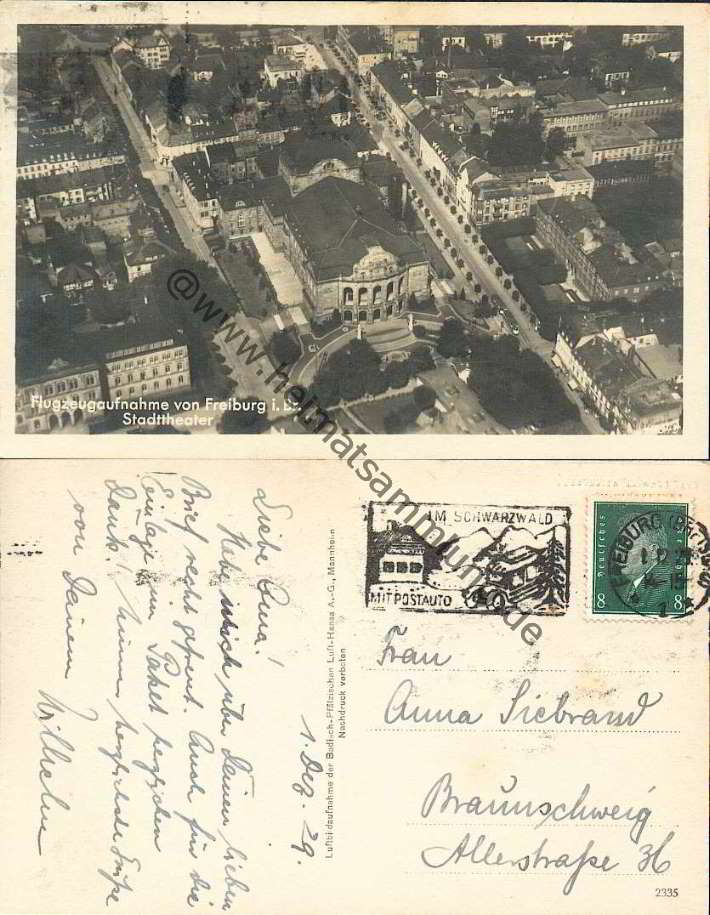 Flugzeugaufnahme von Freiburg i. Br.
Stadttheater
@www.heimatsammlung.de
Liebe Anna!
Habe mich über Deinen lieben
Brief recht gefreut. Auch für die
Einlage zum Paket herzlichen
Dank! Nimm herzlichste Grüße
von Deinem Wilhelm
1. Dez. 29.
Luftbildaufnahme der Badisch-Pfälzischen Luft-Hansa A.-G., Mannheim
Nachdruck verboten
IM SCHWARZWALD
MIT POSTAUTO
FREIBURG
Deutsches
8 8
Frau
Anna Siebrand
Braunschweig
Allerstraße 36
2335